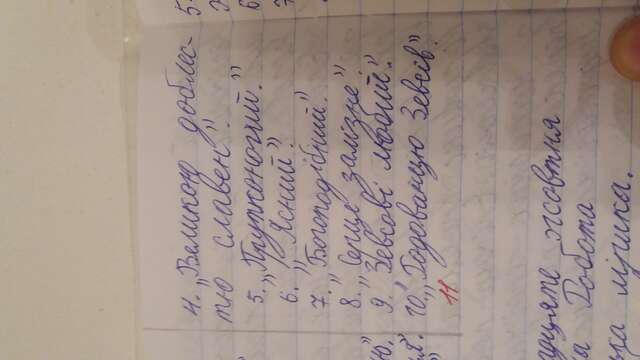 4. „Великою доблес-
тю славен".
5. „Прудконогий."
6. „Ясний".
7. „Богоподібний".
8. „Серце залізне".
9. Зевсові любий".
10. „Годованцю Зевсів".
11
жовтня
Робота
лірика.